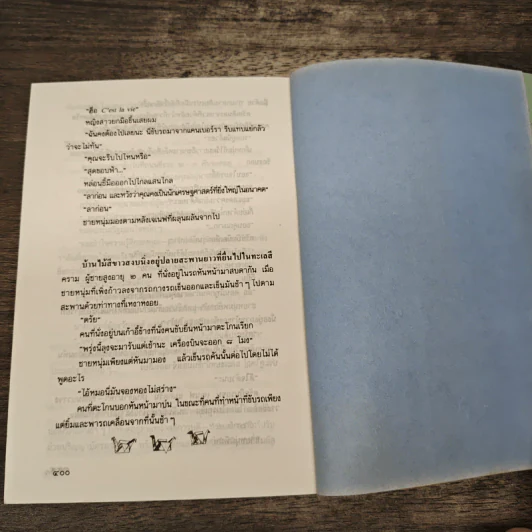 "ฮือ C'est la vie"
หญิงสาวยกมือขึ้นเสยผม
"ฉันคงต้องไปเลยนะ นี่ขับรถมาจากแคนเบอร์รา รีบแทบแย่กลัว
ว่าจะไม่ทัน"
"คุณจะรีบไปไหนหรือ"
"สุดขอบฟ้า..."
หล่อนชี้มือออกไปไกลแสนไกล
"ลาก่อน และหวังว่าคุณคงเป็นนักเศรษฐศาสตร์ที่ยิ่งใหญ่ในอนาคต"
"ลาก่อน"
ชายหนุ่มมองตามหลังเจเนฟที่ผลุนผลันจากไป
บ้านไม้สีขาวสงบนิ่งอยู่ปลายสะพานยาวที่ยื่นไปในทะเลสี
คราม ผู้ชายสูงอายุ ๒ คน ที่นั่งอยู่ในรถหันหน้ามาสบตากัน เมื่อ
ชายหนุ่มที่เพิ่งก้าวลงจากรถกางรถเข็นออกและเข็นมันช้า ๆ ไปตาม
สะพานด้วยท่าทางที่เหงาหงอย
"ตรัย"
คนที่นั่งอยู่บนเก้าอี้ข้างที่นั่งคนขับยื่นหน้ามาตะโกนเรียก
"พรุ่งนี้ลุงจะมารับแต่เช้านะ เครื่องบินจะออก ๘ โมง"
ชายหนุ่มเพียงแต่หันมามอง แล้วเข็นรถคันนั้นต่อไปโดยไม่ได้
พูดอะไร
"ไอ้หมอนี่มันจองหองไม่สร่าง"
คนที่ตะโกนบอกหันหน้ามาบ่น ในขณะที่คนที่ทำหน้าที่ขับรถเพียง
แต่ยิ้มและพารถเคลื่อนจากที่นั้นช้า ๆ
๔๐๐